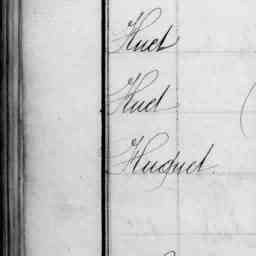 Huet
Huet
Huguet